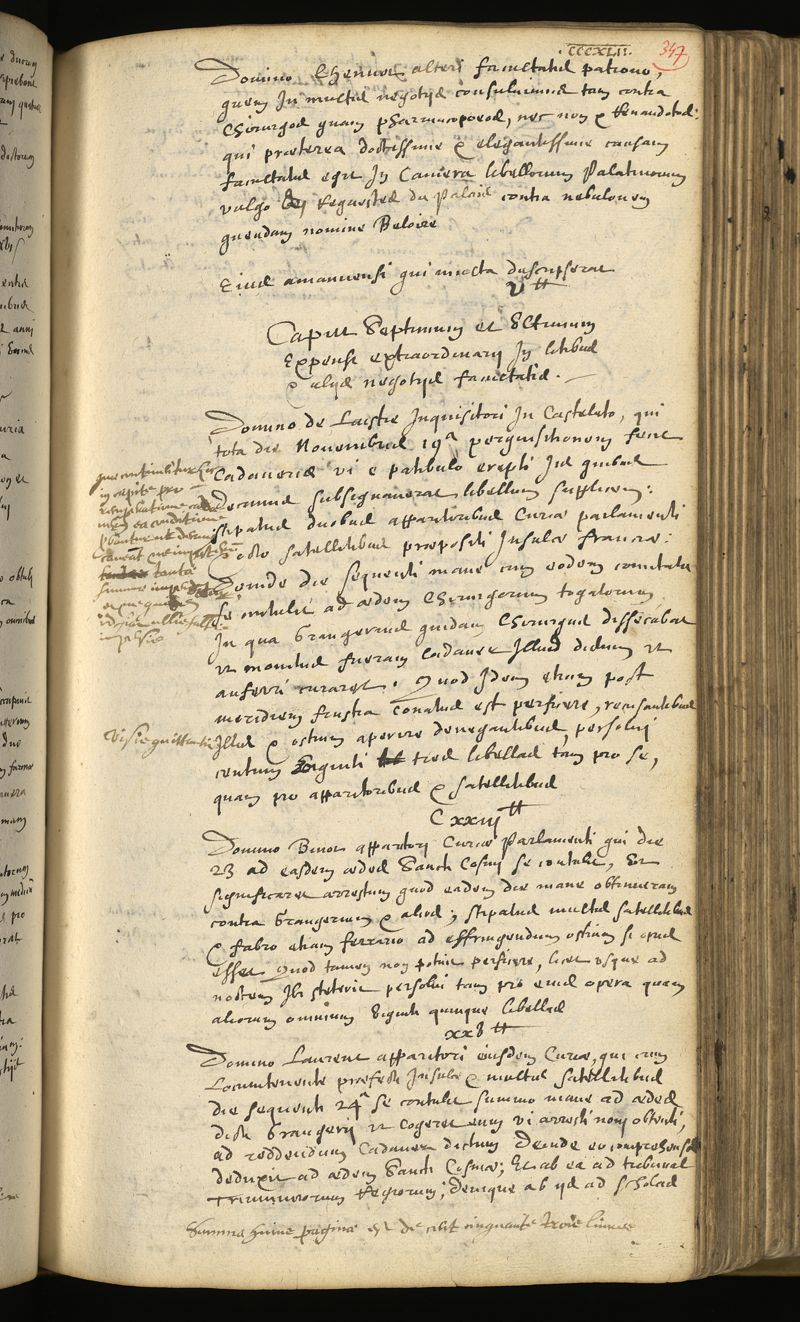 CCCXLII.
347
Domino Chenvot alteri facultatis patrono,
quem In multis negotijs consuluimus tam contra
Chirurgos quam pharmacopoeos, nec non & Renaudotos:
qui praeterea doctissime & elegantissime causam
facultatis egit In Camera libellorum Palatinorum
vulgo Requestes du Palais contra nebulonem
quendam nomine Beloire
Eius amanuensi qui multa descripserat
v ₶
Caput Septimum et Ultimum
Expensi extraordinarij In litibus
& alijs negotijs facultatis.
Domino de Laistre Inquisitori In Casteleto, qui
tota die Novembris 19ª perquisitionem fecit
Cadaveris vi e patibulo erepti
decanus subsignaverat libellum supplicem:
stipatus duobus apparitoribus Curiae parlamenti
& octo satellitibus praepositi Insulae franciae:
Deinde die sequenti mane cum eodem comitatu
se contulit ad aedem Chirurgorum togatorum
In qua Grangerius quidam Chirurgus dissecabat
ut monitus fueram Cadaver Illud dictum ut
auferri curaret. Quod Idem etiam post
meridiem frustra conatus est perficere, recusantibus
Illis & ostium aperire denegantibus, persolui
centum viginti tres libellas tam pro se,
quam pro apparitoribus & satellitibus
Cxxiij ₶
Domino Binot apparitori Curiae Parlamenti qui die
23 ad easdem aedes Sancti Cosmi se contulit, Et
significaret arrestum quod eadem die mane obtinueram
contra Grangerium & alios; stipatus multis satellitibus
& fabro etiam ferrario ad effringendum ostium si opus
esset Quod tamen non potuit perficere, licet usque ad
noctem Ibi steterit persolui tam pro eius opera quam
aliorum omnium viginti quinque libellas
xxv ₶
Domino Laurent apparitori eiusdem Curiae, qui cum
Locumtenente praefecti Insulae & multis satellitibus
die sequenti 24ª se contulit summo mane ad aedes
dicti Grangerij ut cogeret eum vi arresti nostri obtenti,
ad reddendum Cadaver dictum Deinde eo comprehenso
deduxit ad aedem Sancti Cosmae; Et ab ea ad tribunal
Triumvirorum Regiorum; denique ab ijs ad scholas
Summa huius paginae est de cent cinquante trois livres